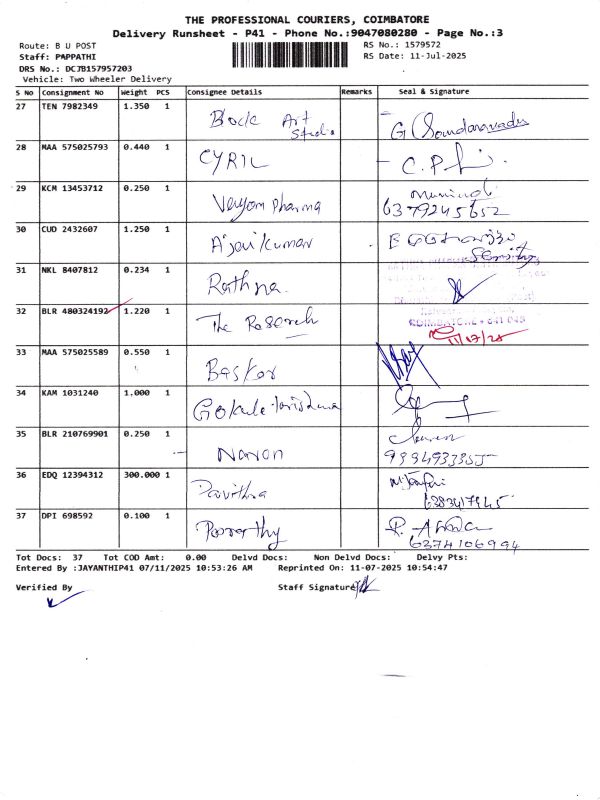 THE PROFESSIONAL COURIERS, COIMBATORE
Delivery Runsheet - P41 - Phone No.:9047080280 - Page No.:3
Route: B U POST RS No.: 1579572
Staff: PAPPATHI RS Date: 11-Jul-2025
DRS No.: DC7B157957203
Vehicle: Two Wheeler Delivery
S No Consignment No Weight PCS Consignee Details Remarks Seal & Signature
27 TEN 7982349 1.350 1 Block Art Studio G
28 MAA 575025793 0.440 1 CYRIL C.P
29 KCM 13453712 0.250 1 Pharma
6379245652
30 CUD 2432607 1.250 1 Ajaikumar
31 NKL 8407812 0.234 1 Rathna
32 BLR 480324192 1.220 1 The Research
COIMBATORE - 641 046
11/07/25
33 MAA 575025589 0.550 1 Baskar
34 KAM 1031240 1.000 1
35 BLR 210769901 0.250 1 Navon
36 EDQ 12394312 300.000 1 Pavithra
37 DPI 698592 0.100 1 R.
6374106994
Tot Docs: 37 Tot COD Amt: 0.00 Delvd Docs: Non Delvd Docs: Delvy Pts:
Entered By :JAYANTHIP41 07/11/2025 10:53:26 AM Reprinted On: 11-07-2025 10:54:47
Verified By Staff Signature